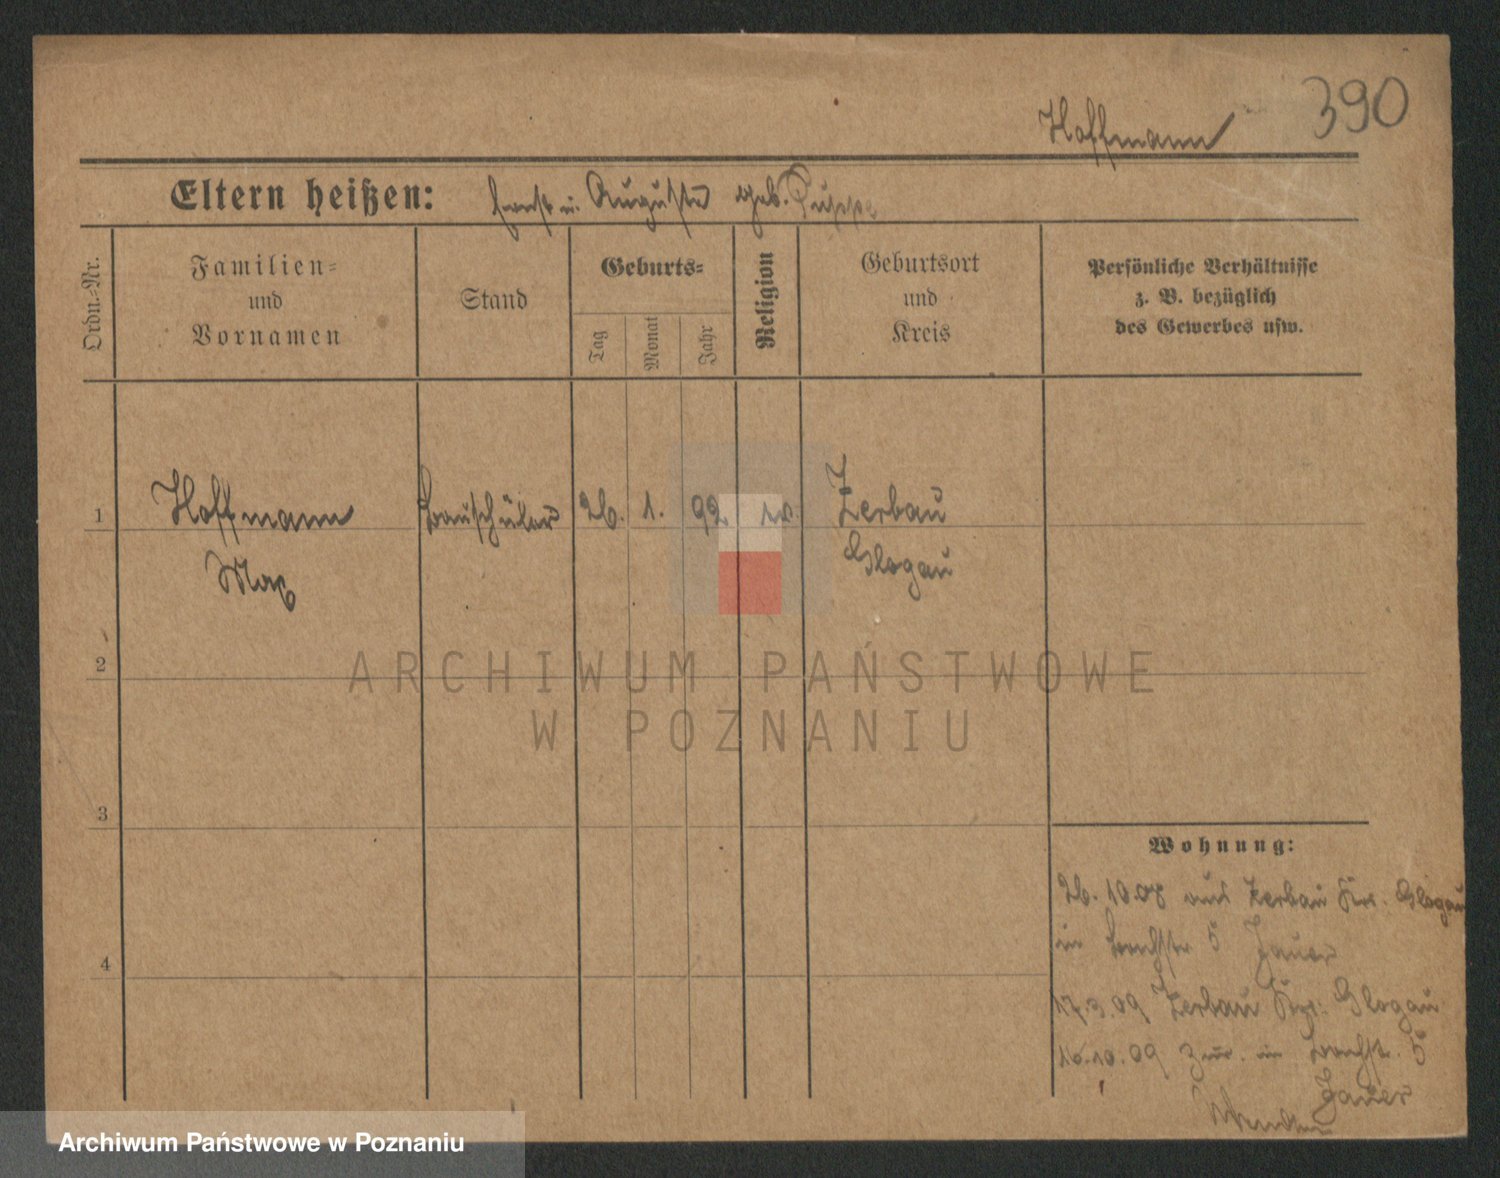 390
Hoffmann
Eltern heißen: Ernst u. Auguste geb. Puppe
Ordn.-Nr.
Familien-
und
Vornamen
Stand
Geburts-
Tag
Monat
Jahr
Religion
Geburtsort
und
Kreis
Persönliche Verhältnisse
z. B. bezüglich
des Gewerbes usw.
1 Hoffmann Bauschüler 26. 1. 92 ev Zerbau
Max Glogau
2
3
4
ARCHIWUM PAŃSTWOWE
W POZNANIU
Wohnung:
26. 10.08 aus Zerbau Krs. Glogau
in 5 Jauer
17.3.09 Zerbau Krs. Glogau
16.10.09 zur. in 5
Jauer
Wenden
Archiwum Państwowe w Poznaniu